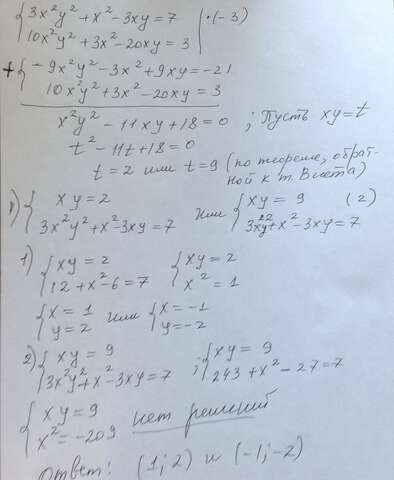 {3x²y² + x² - 3xy = 7 | ·(-3)
{10x²y² + 3x² - 20xy = 3
+ {-9x²y² - 3x² + 9xy = -21
10x²y² + 3x² - 20xy = 3
x²y² - 11xy + 18 = 0 ; Пусть xy = t
t² - 11t + 18 = 0
t = 2 или t = 9 (по теореме, обрат-
ной к т. Виета)
1) {xy = 2 или {xy = 9 (2)
{3x²y² + x² - 3xy = 7 {3x²y² + x² - 3xy = 7
1) {xy = 2 {xy = 2
{12 + x² - 6 = 7 {x² = 1
{x = 1 или {x = -1
{y = 2 {y = -2
2) {xy = 9 ; {xy = 9
{3x²y² + x² - 3xy = 7 {243 + x² - 27 = 7
{xy = 9 нет решений
{x² = -209
Ответ: (1; 2) и (-1; -2)